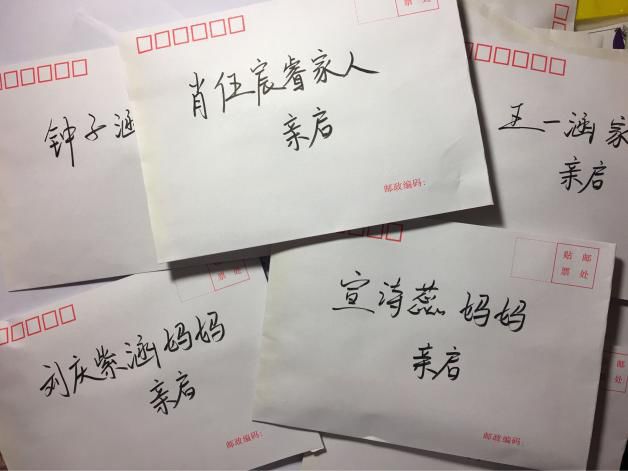 票处
肖伍宸睿家人
亲启
邮政编码:
钟子涵
王一涵家
亲启
票处
刘庆紫涵妈妈
亲启
邮政编码:
贴邮
票处
宣诗蕊妈妈
亲启
邮政编码:
邮
处